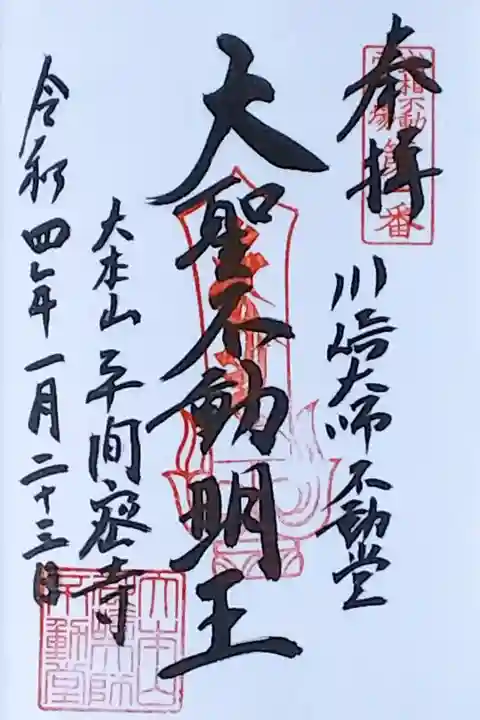 奉拝
武相不動
霊場第一番
川崎大師不動堂
大聖不動明王
大本山平間密寺
令和四年一月二十三日
大本山
川崎大師
不動堂